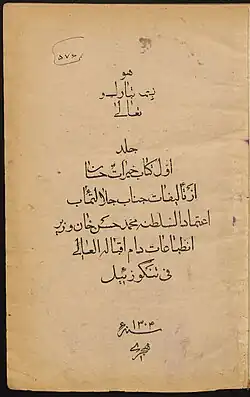 ۵۷۶
هو
بسمه تبارک و
تعالی
جلد
اول کتاب خیرات حسان
از تألیفات جناب جلالتمآب
اعتماد السلطنه محمد حسن خان وزیر
انطباعات دام اقباله العالی
فی تنگوزئیل
سنه ۱۳۰۴
هجری